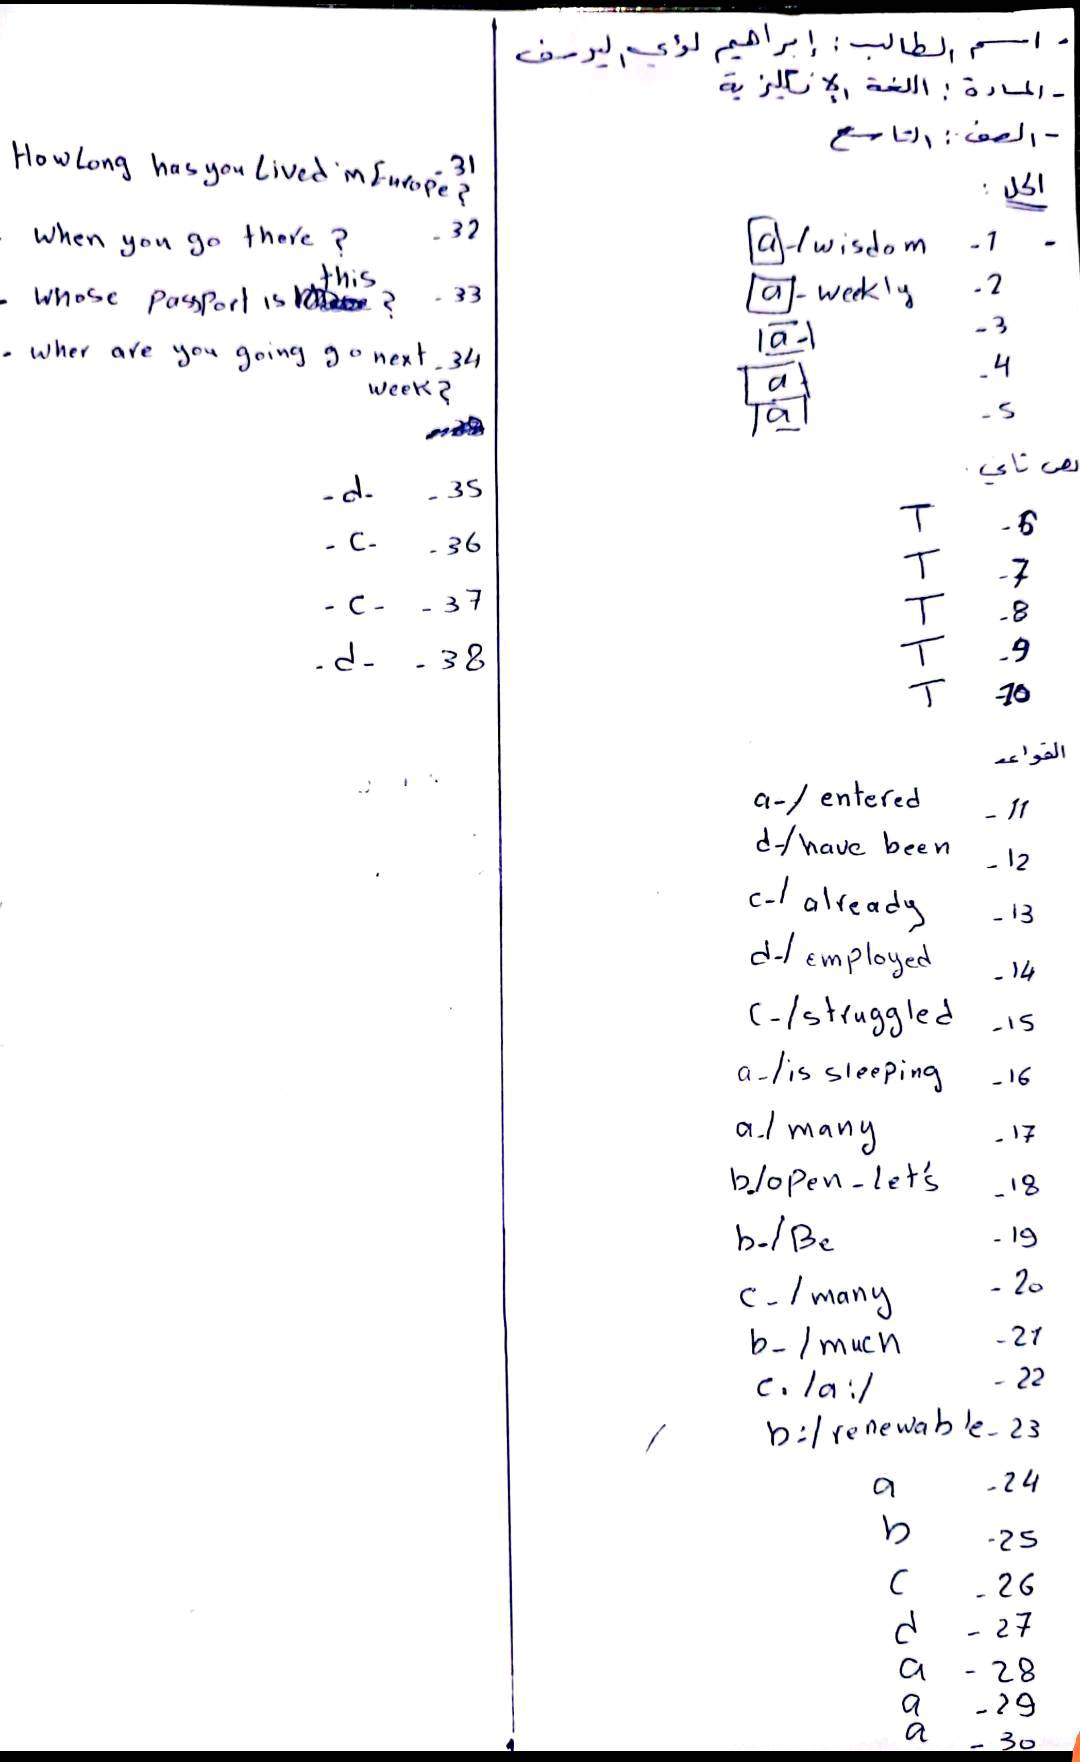 - اسم الطالب : إبراهيم لؤي اليوسف
- المادة : اللغة الإنكليزية
- الصف : التاسع
الحل :
- 1- a-/wisdom
2- a- weekly
3- a-
4- a
5- a
نص تاني
6- T
7- T
8- T
9- T
10- T
القواعد
11- a-/ entered
12- d-/have been
13- c-/ already
14- d-/ employed
15- c-/struggled
16- a-/is sleeping
17- a-/ many
18- b-/open - let's
19- b-/Be
20- c-/many
21- b-/much
22- c. /a:/
23- b:/renewable
24- a
25- b
26- c
27- d
28- a
29- a
30- a
31- How Long has you Lived in Europe?
32- When you go there ?
33- Whose Passport is this ?
34- Wher are you going go next
week?
35- d-
36- c-
37- c-
38- d-